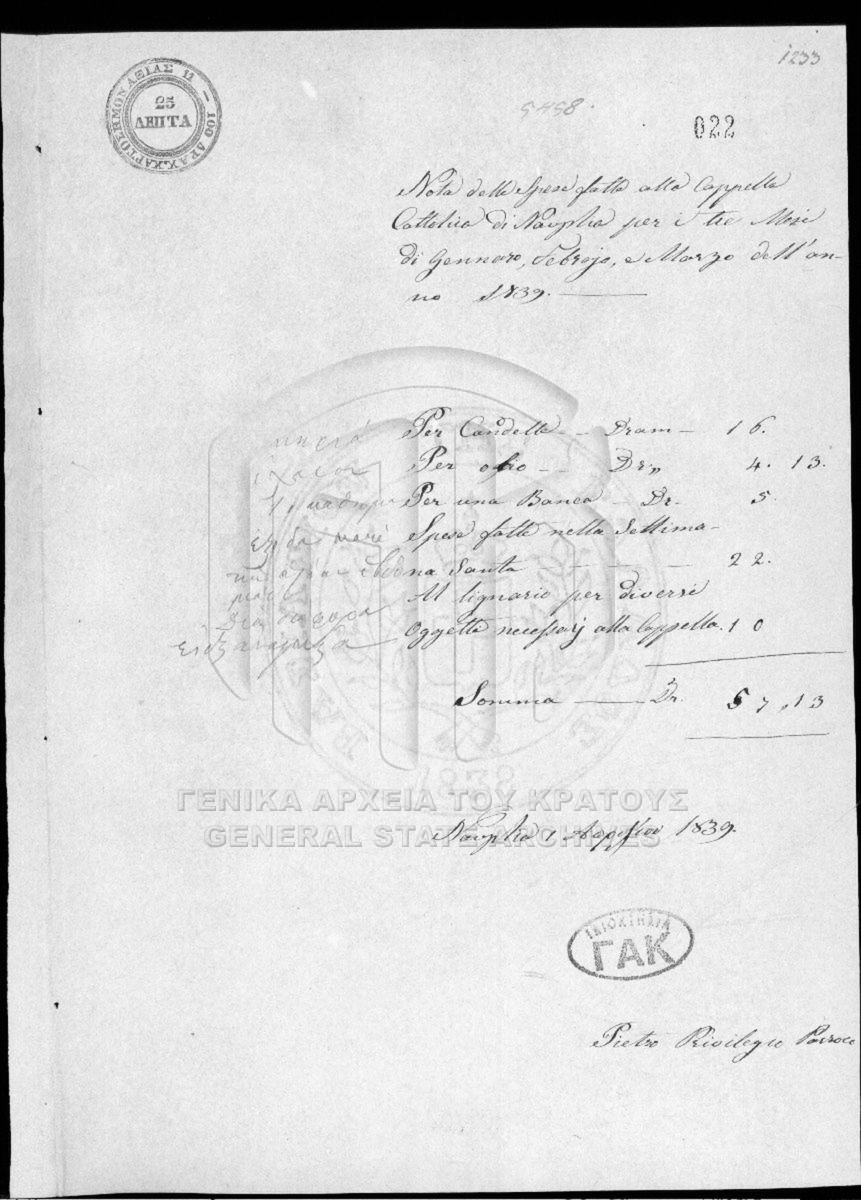 1233
ΧΑΡΤΟΣΗΜΟΝ ΑΞΙΑΣ 11 — 100 ΔΡΑΧ.
25
ΛΕΠΤΑ
5458.
022
Nota delle Spese fatte alla Cappella
Cattolica di Nauplia per i tre Mesi
di Gennaro, Febrajo, e Marzo dell'an-
no 1839.
κηριά Per Candelle -- Dram - 16.
Per oglio -- Dr,, 4. 13.
Per una Banca - Dr. 5.
Spese fatte nella Settima-
na Santa 22.
Al lignario per diversi
διάφορα
Oggetti necessarj alla Cappella. 10
Somma Dr. 57,13
1838
ΓΕΝΙΚΑ ΑΡΧΕΙΑ ΤΟΥ ΚΡΑΤΟΥΣ
GENERAL STATE ARCHIVES
Nauplia 1 Απριλίου 1839.
ΙΔΙΟΚΤΗΣΙΑ
ΓΑΚ
Pietro Privilegio Parroco